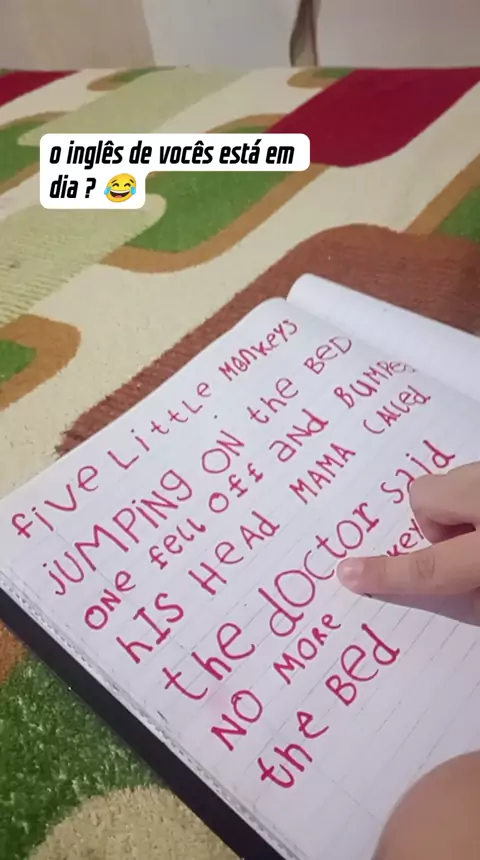 o inglês de vocês está em
dia ? 😂
five Little MonKeys
jUMPiNg ON the BED
ONe fell Off aNd BUMPeD
hIS HeAd MAMA CAlled
the dOCtOr said
NO MORe
the Bed